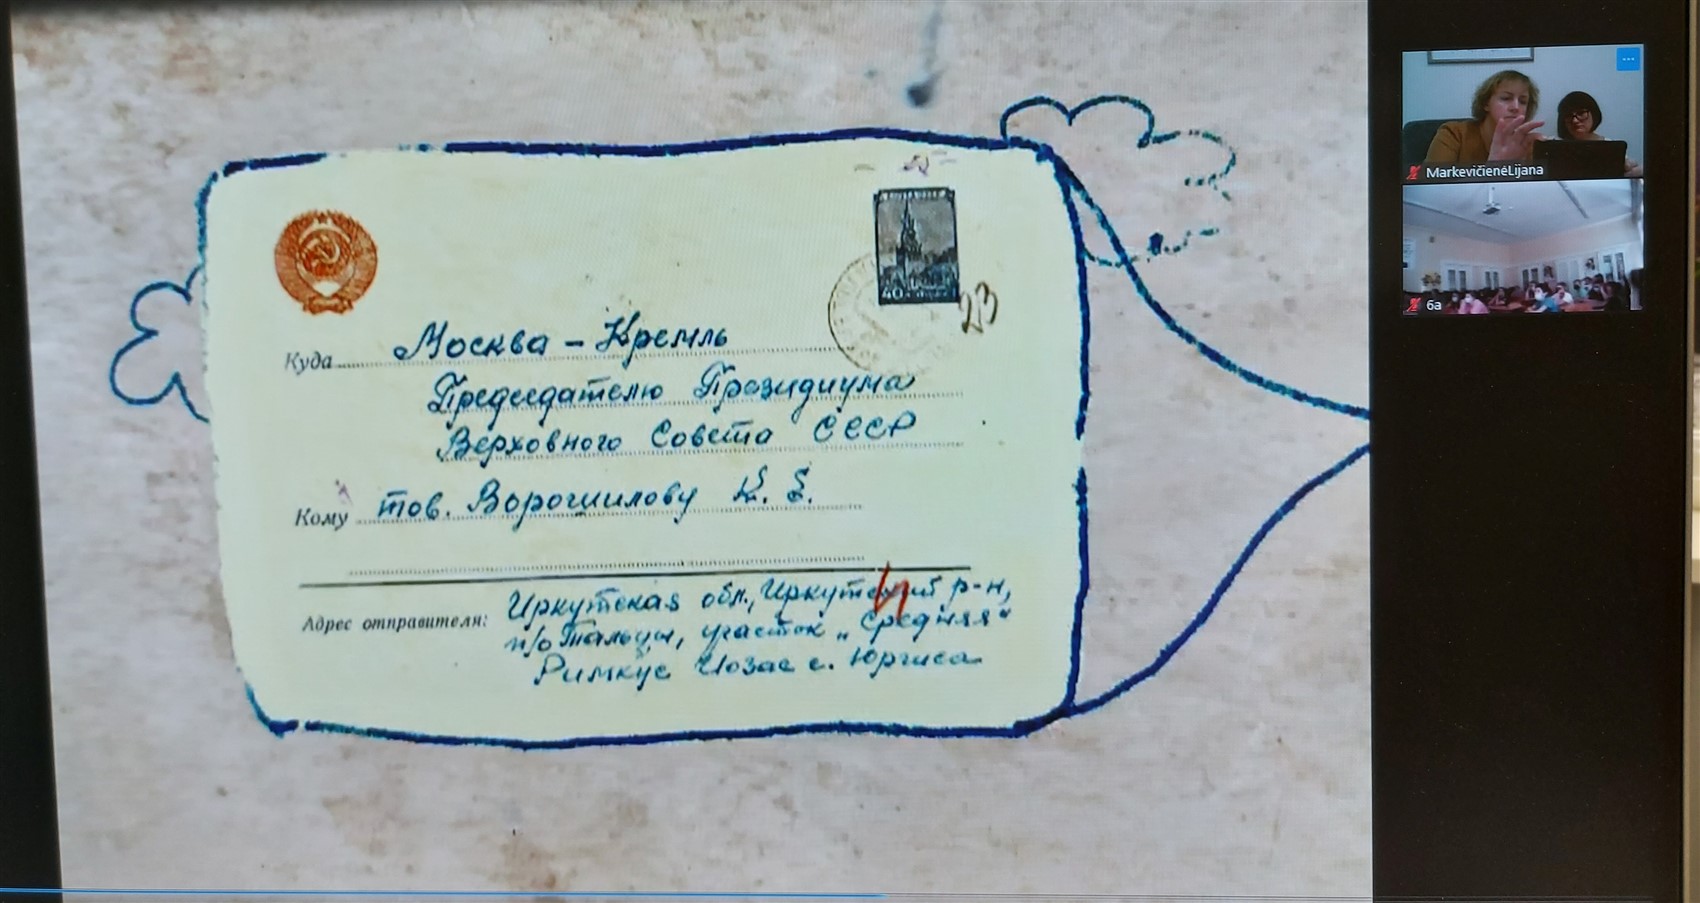 40
23
Куда Москва - Кремль
Председателю Президиума
Верховного Совета СССР
Кому тов. Ворошилову К. Е.
Адрес отправителя: Иркутская обл., Иркутский р-н,
п/о Тальцы, участок „Средняя“
Римкус Иозас с. Юргиса
MarkevičienėLijana
6a